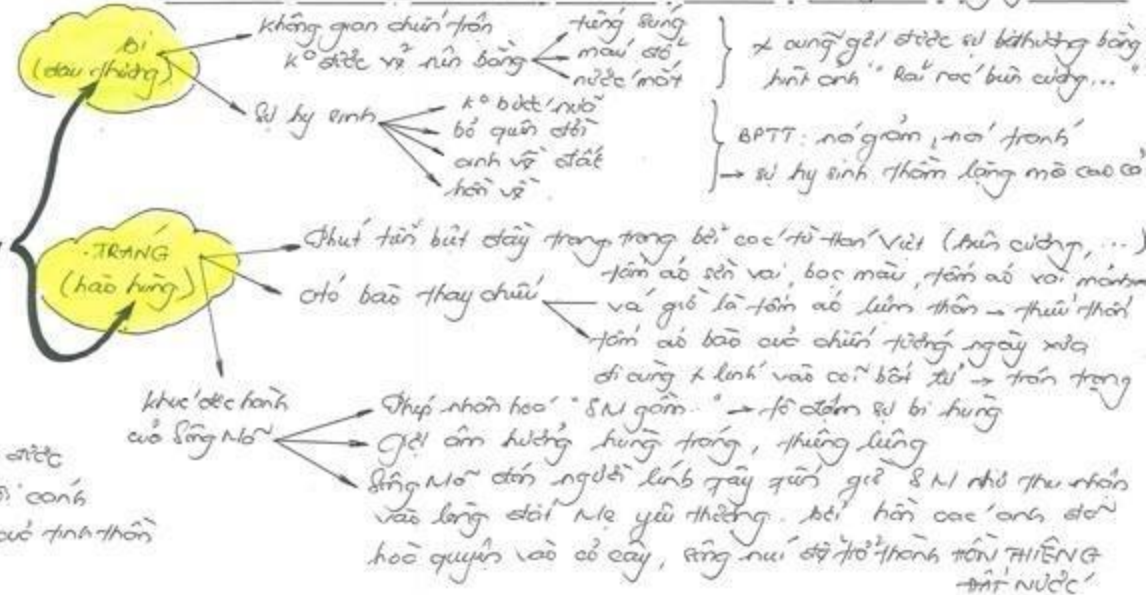 BI
(đau thương)
không gian chiến trận
k° được vẽ nên bằng
tiếng súng
máu đổ
nước mắt
+ cũng gợi được sự bi thương bằng
hình ảnh "Rải rác biên cương..."
Sự hy sinh
k° bước nữa
bỏ quên đời
anh về đất
hồn về
BPTT: nói giảm, nói tránh
→ sự hy sinh thầm lặng mà cao cả
TRÁNG
(hào hùng)
Phút tiễn biệt đầy trang trọng bởi các từ Hán Việt (biên cương, ...)
áo bào thay chiếu
tấm áo sờn vai, bạc màu, tấm áo vải
và giờ là tấm áo liệm thân → thiếu thốn
tấm áo bào của chiến tướng ngày xưa
đi cùng lính vào cõi bất tử → trân trọng
khúc độc hành
của Sông Mã
Phép nhân hoá "SM gầm.." → tô đậm sự bi hùng
Gợi âm hưởng hùng tráng, thiêng liêng
Sông Mã đón người lính Tây Tiến SM như thu nhận
vào lòng đất Mẹ yêu thương. Bởi hồn các anh đã
hoà quyện vào cỏ cây, sông núi để trở thành HỒN THIÊNG
ĐẤT NƯỚC
được
cảnh
của tinh thần